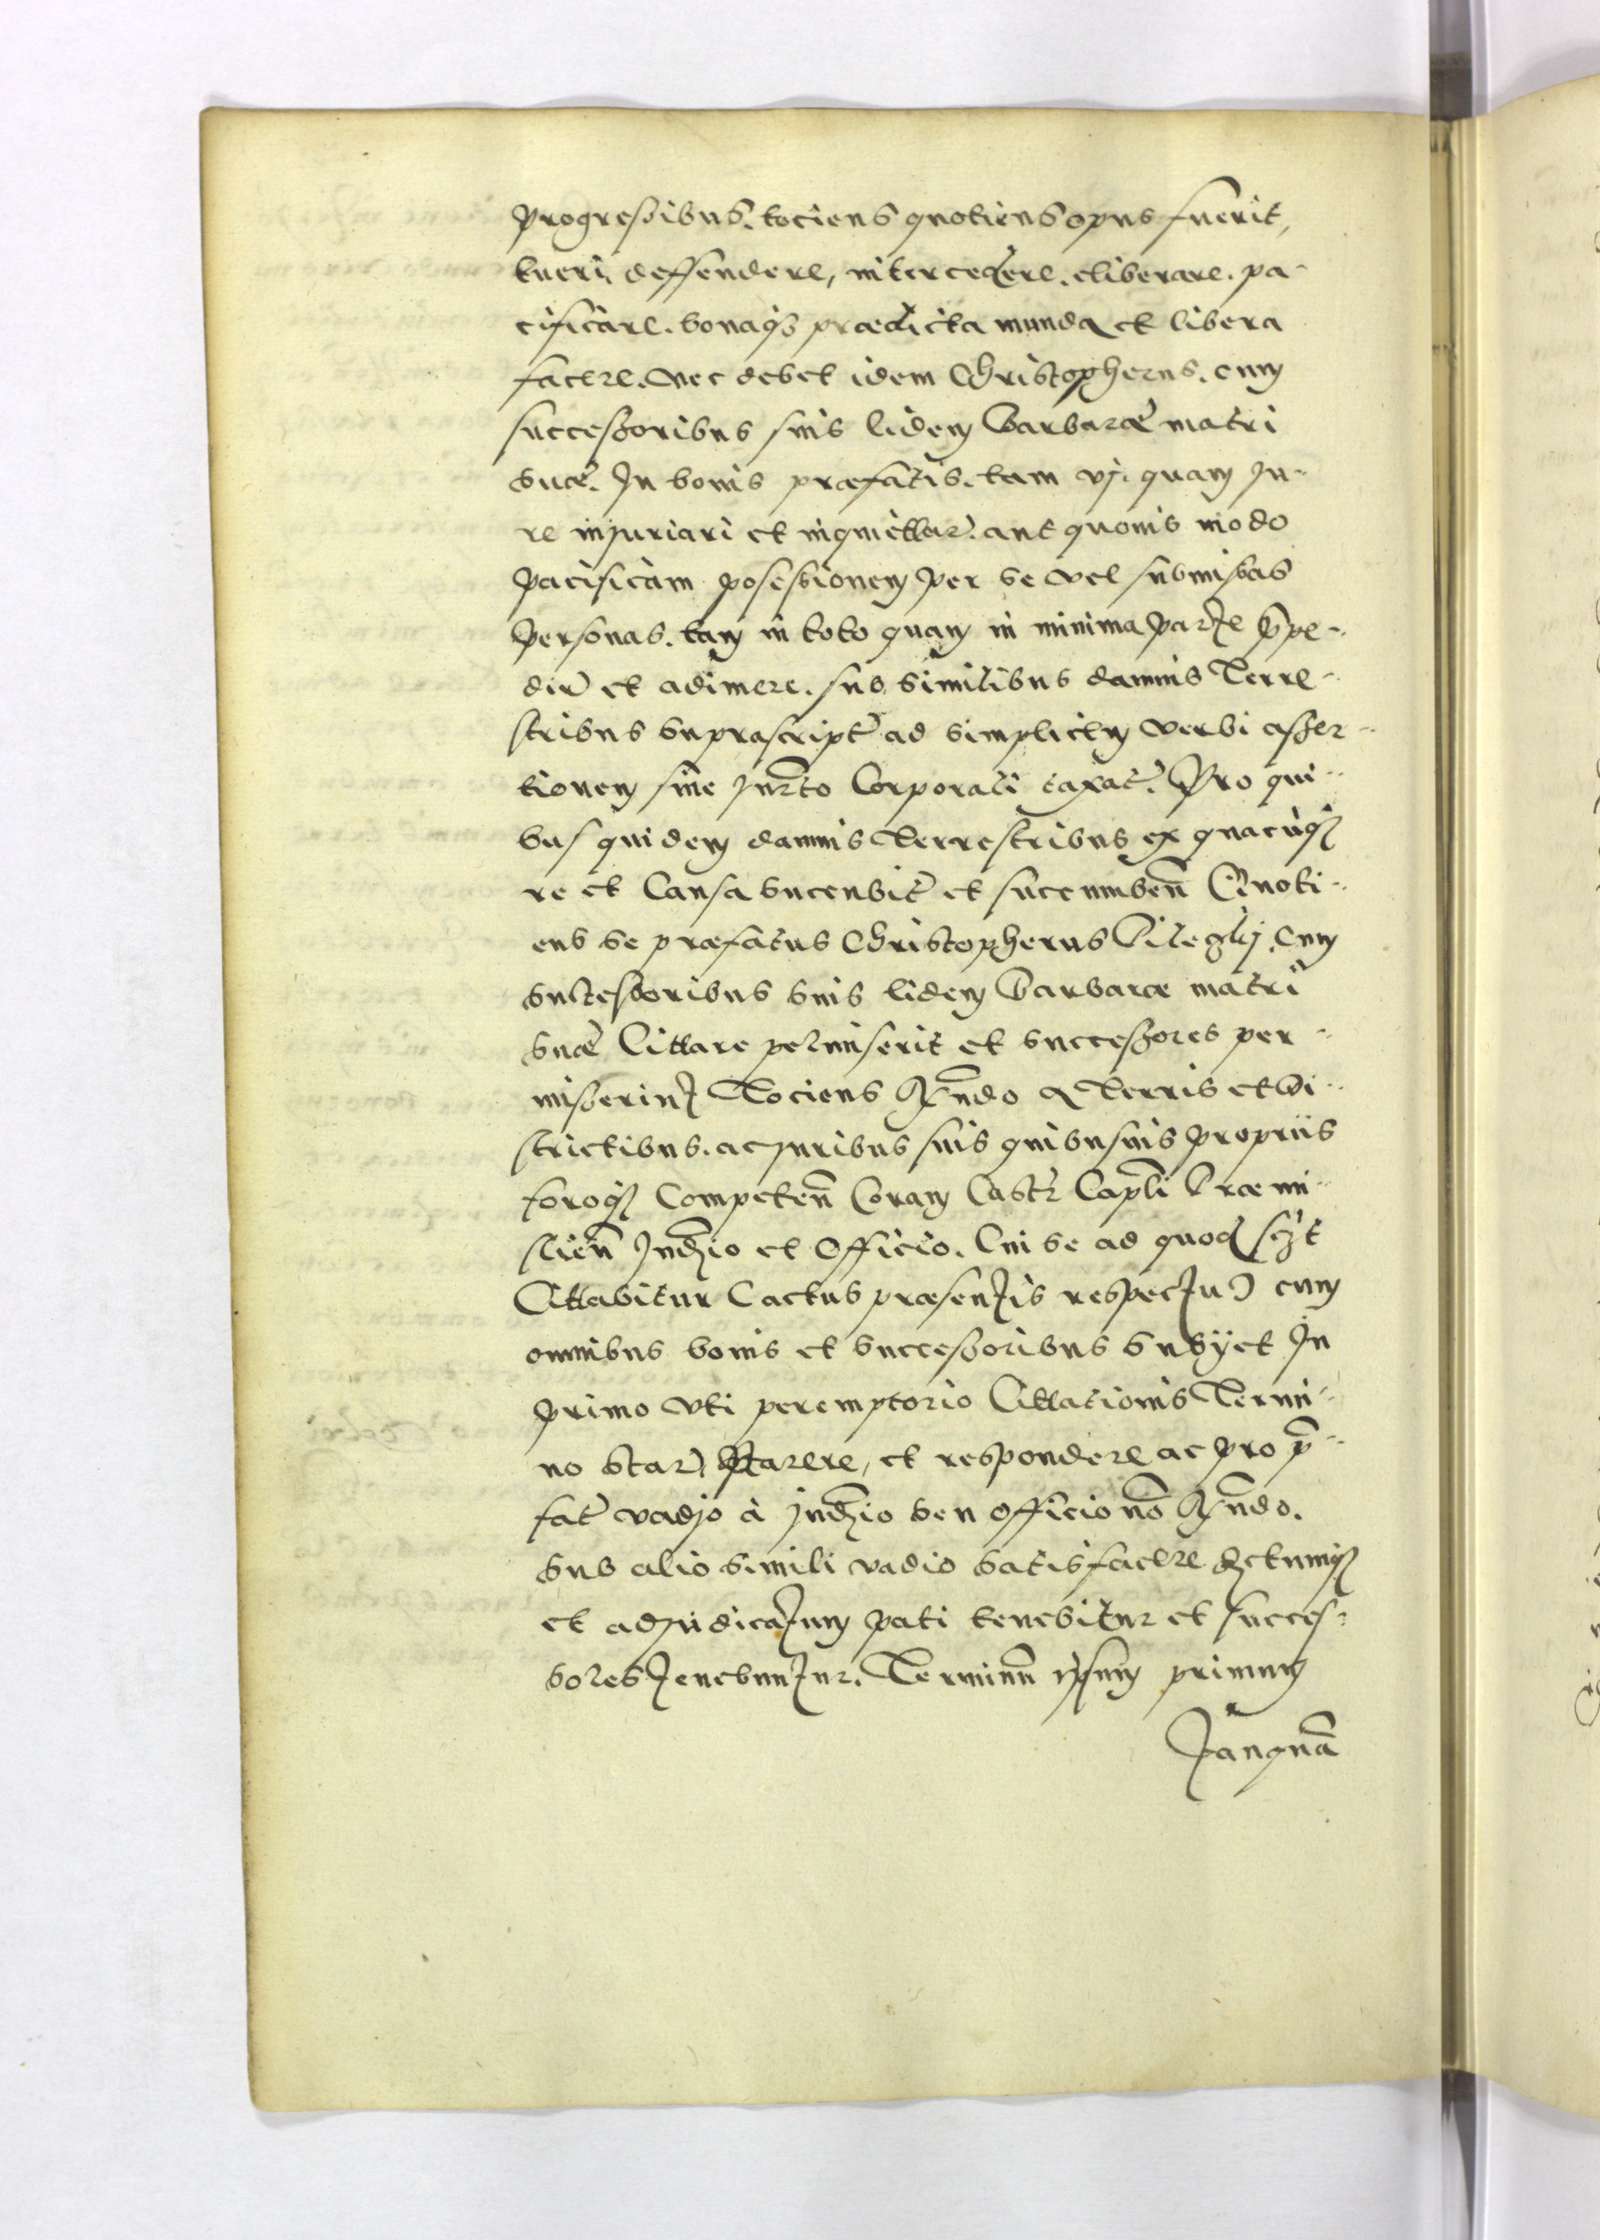 progressibus. tociens quotiens opus fuerit,
tueri, deffendere, intercedere. eliberare. pa-
cificare. bonaq3 praedicta munda et libera
facere. Nec debet idem Christopherus. cum
successoribus suis eidem Barbarae matri
suae. In bonis praefatis. tam vj. quam Ju-
re injuriari et inquiettare. aut quovis modo
pacificam posessionem per se vel submissas
personas. tam in toto quam in minima parte p̄pe-
dire et adimere. sub similibus damnis Terre-
stribus supra script. ad simplicem verbi asser-
tionem sine Jurto Corporali taxat. Pro qui-
bus quidem damnis Terrestribus ex quacuq3
re et Causa sucenbit et succumben Quoti-
ens se praefatus Christopherus cum
successoribus suis eidem Barbarae matri
suae Cittare permiserit et successores per-
misserint Tociens a Terris et Di-
strictibus. ac juribus suis quibusvis propriis
foroq3 Competen Coram Castr Capli Praemi-
slien Judio et Officio. Cui se ad quod
Cittabitur Cactus praesentis respectu cum
omnibus bonis et successoribus subijcit In
primo vti peremptorio Cittationis Termi-
no stare, parere, et respondere ac pro p̄-
fat vadjo à Judio seu officio no
sub alio simili vadio satisfacere
et adjudicatum pati tenebitur et succes-
sores tenebuntur. Terminum ipsum primum
Tanquā